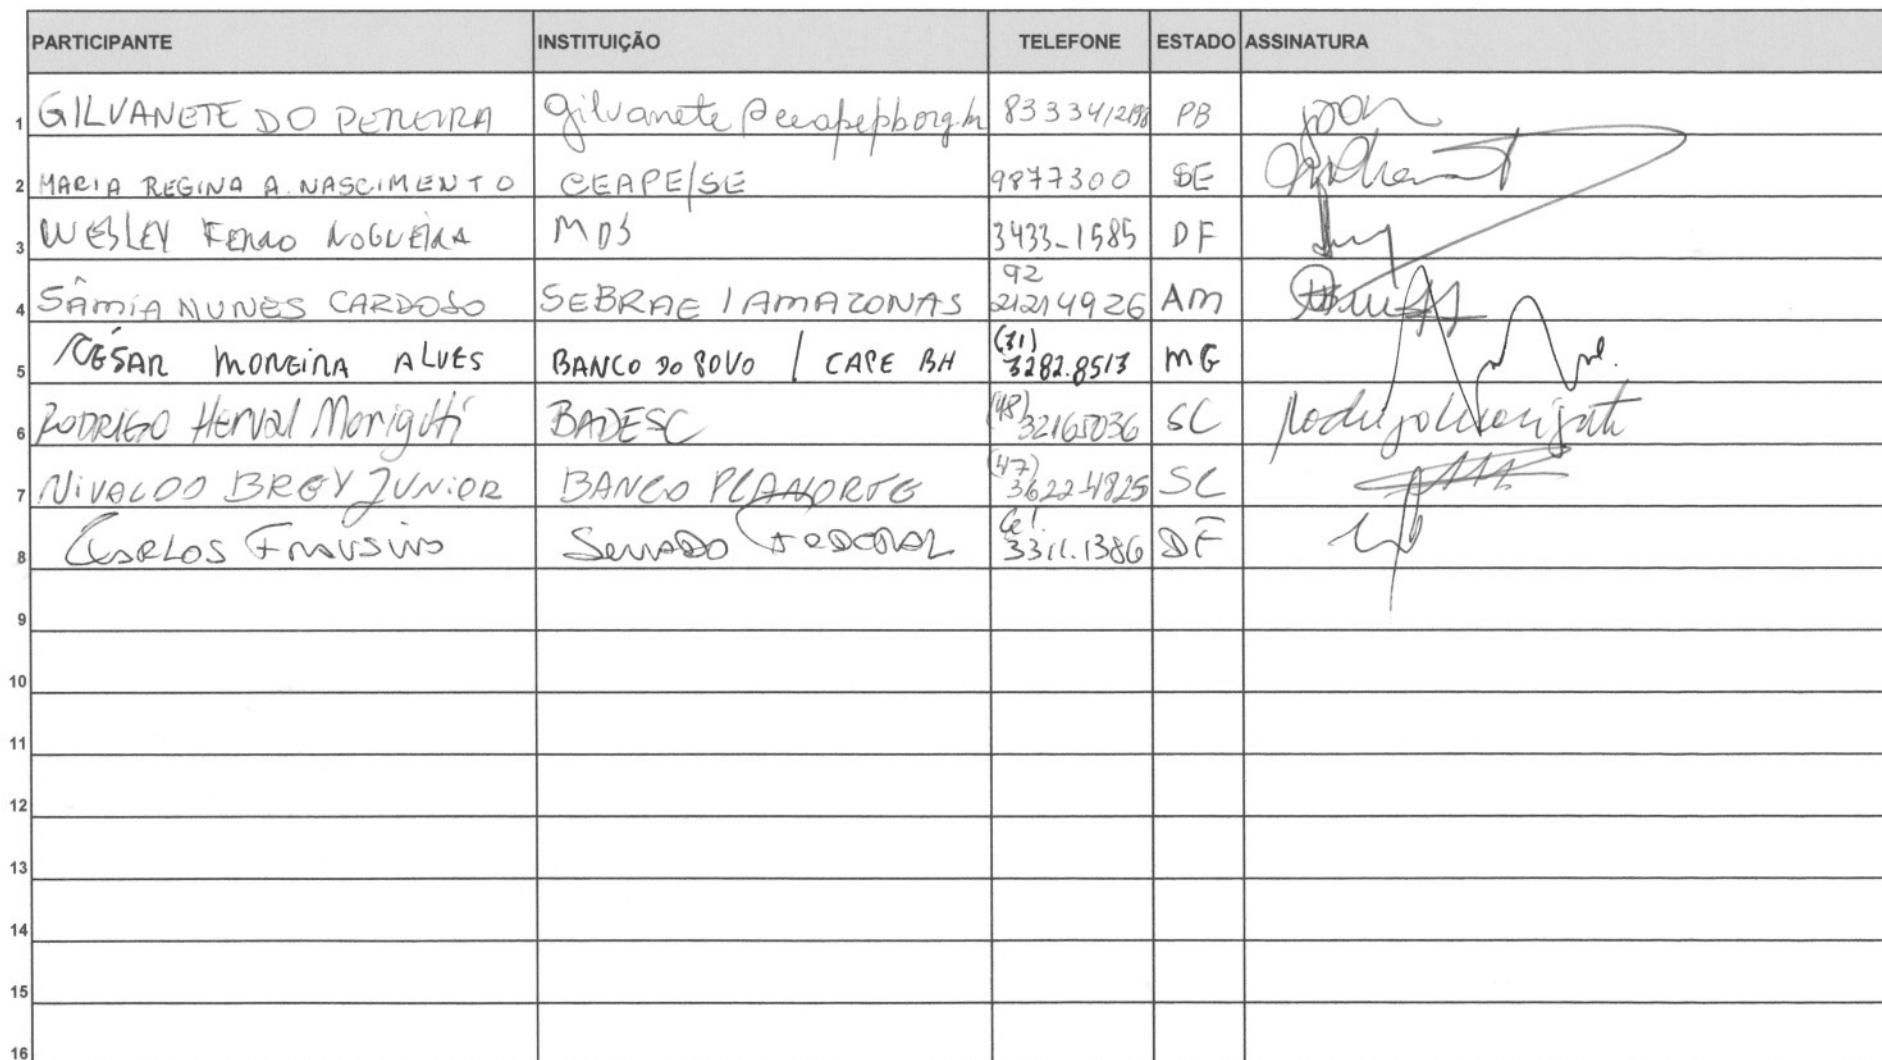 PARTICIPANTE INSTITUIÇÃO TELEFONE ESTADO ASSINATURA
1 GILVANETE DO PEREIRA PB
2 MARIA REGINA A. NASCIMENTO CEAPE/SE 9877300 SE
3 WESLEY NOGUEIRA MDS 3433-1585 DF
92
4 SÂMIA NUNES CARDOSO SEBRAE / AMAZONAS 21214926 AM
5 CÉSAR MOREIRA ALVES BANCO DO POVO / CAPE BH 3282.8513 MG
(48)
6 RODRIGO Herval Moriguti BADESC 32165036 SC
(47)
7 NIVALDO BREY JUNIOR BANCO PLANORTE SC
8 CARLOS SENADO FEDERAL 3311.1386 DF
9
10
11
12
13
14
15
16